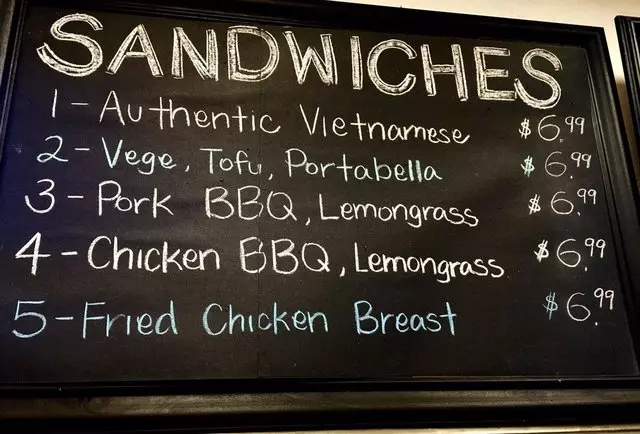 SANDWICHES
1 - Authentic Vietnamese $6.99
2 - Vege, Tofu, Portabella $6.99
3 - Pork BBQ, Lemongrass $6.99
4 - Chicken BBQ, Lemongrass $6.99
5 - Fried Chicken Breast $6.99